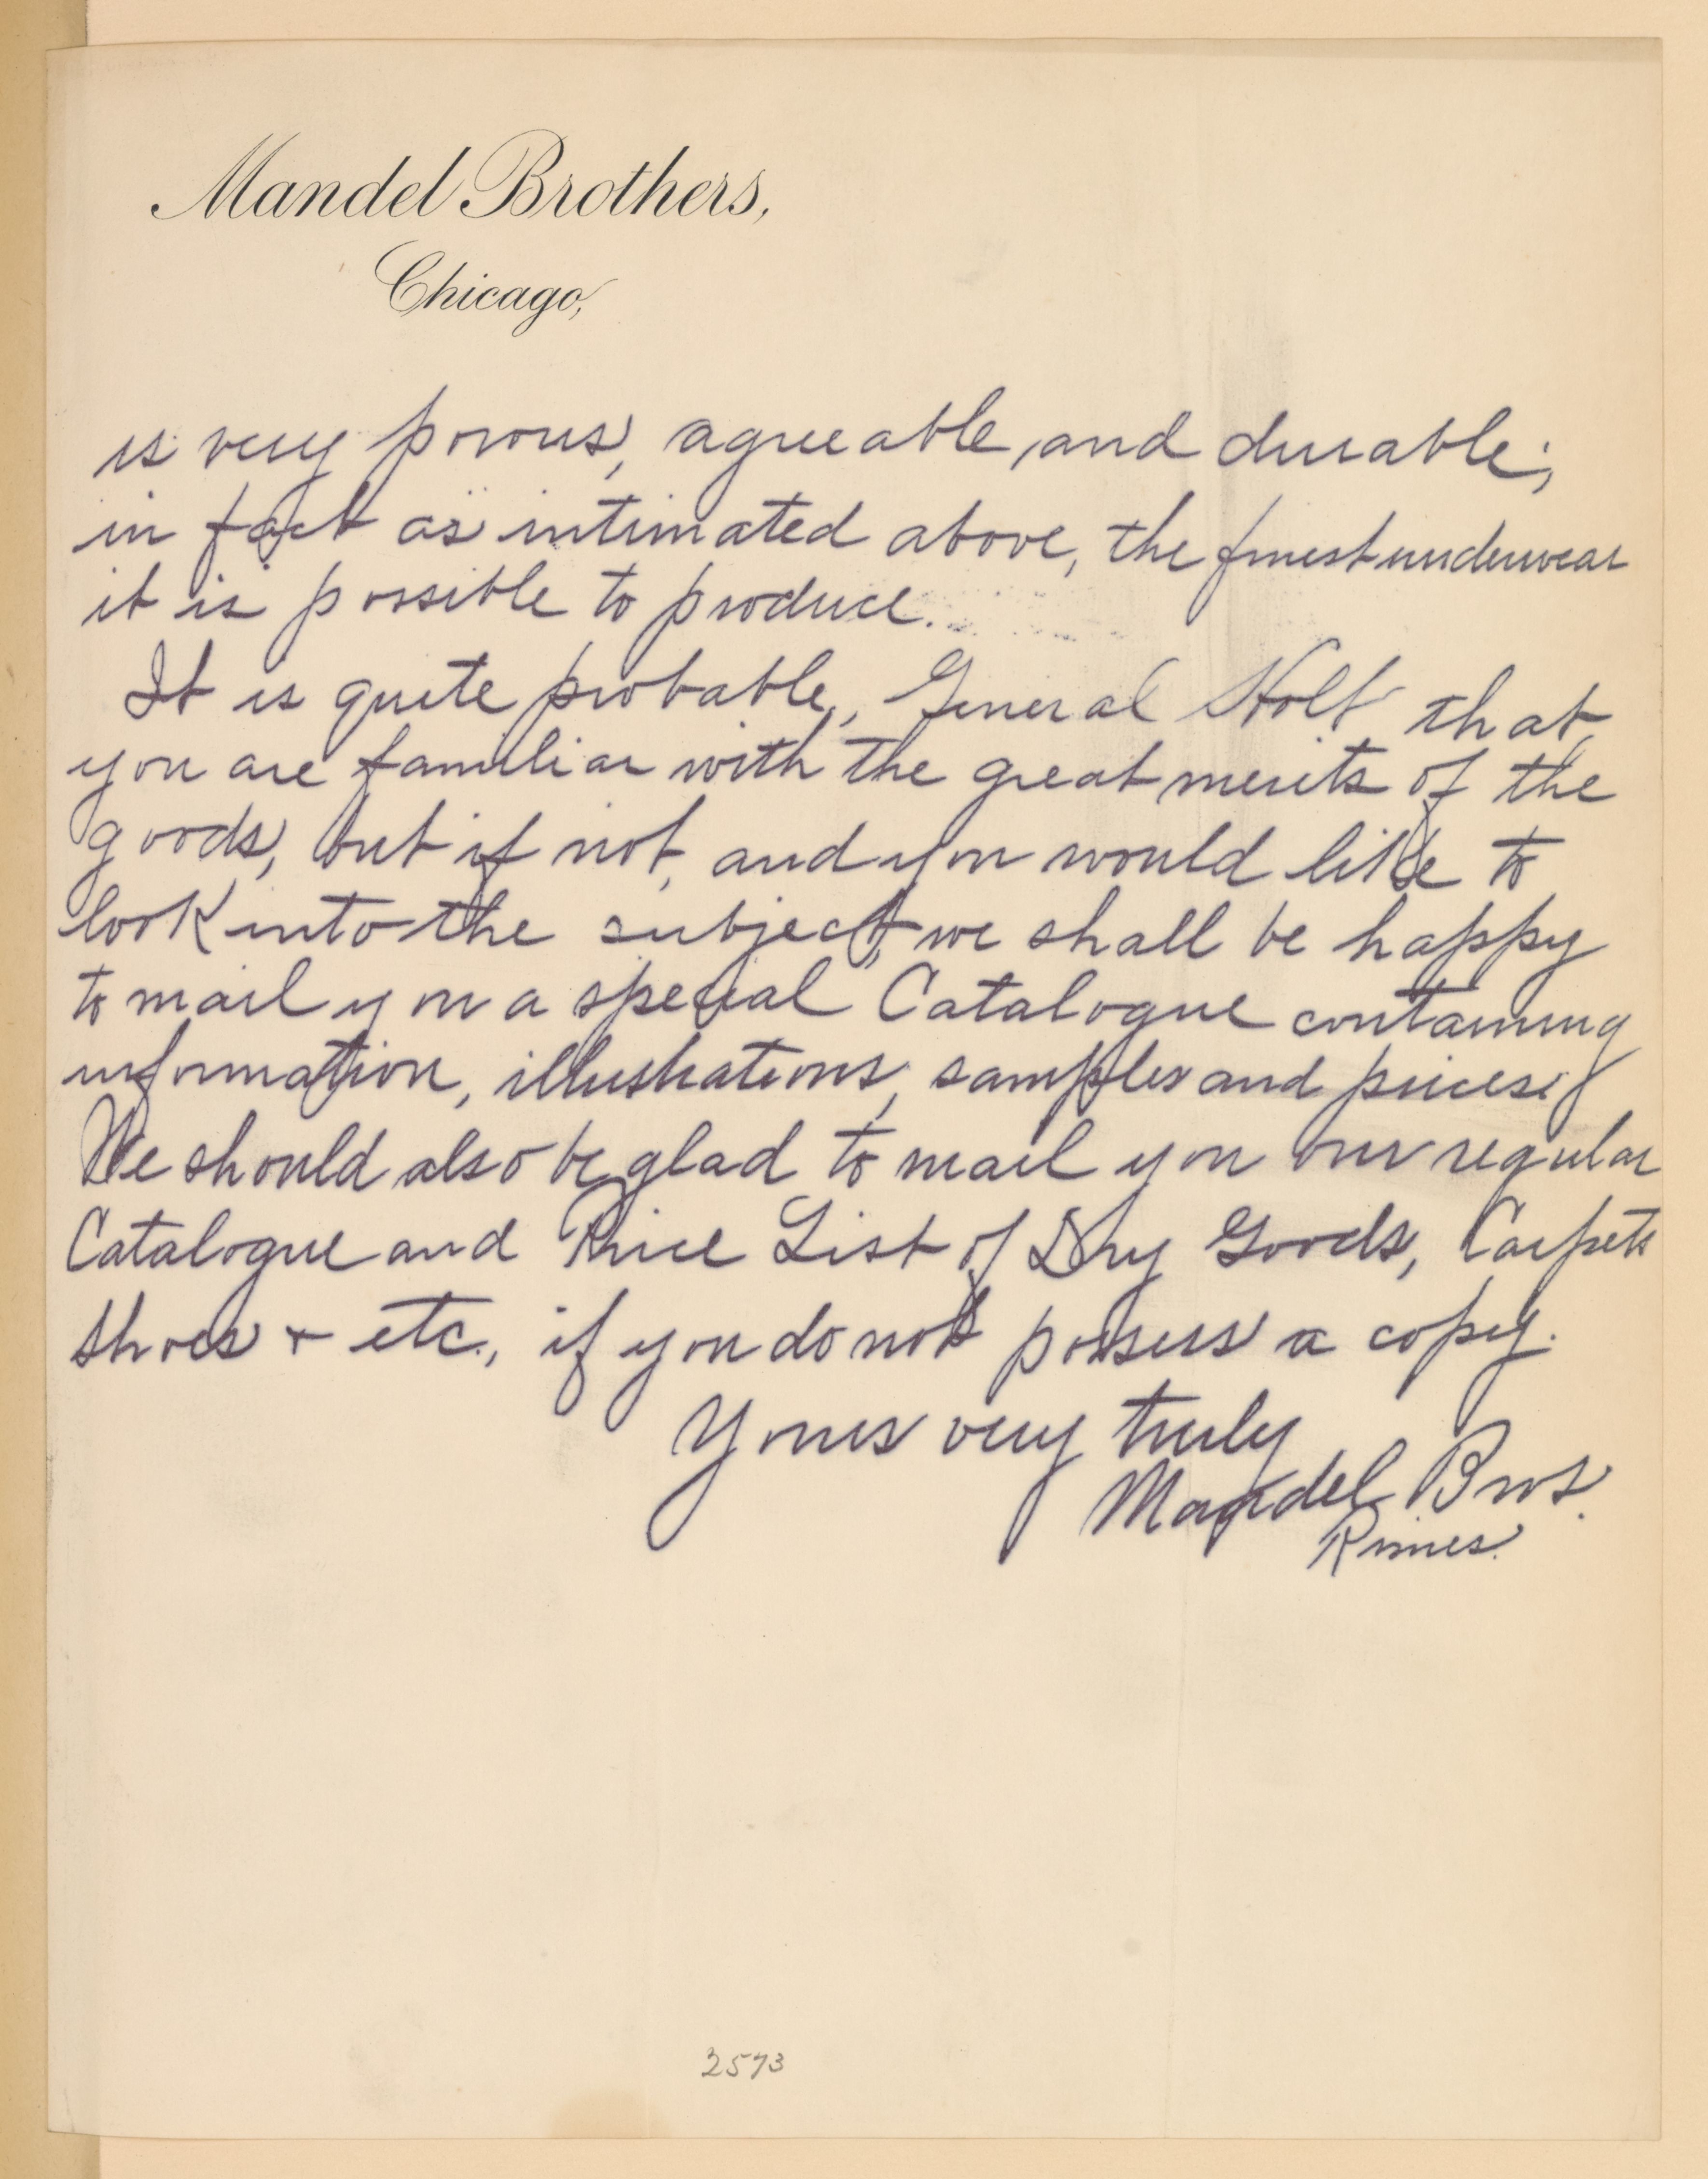 Mandel Brothers,
Chicago,
is very porous, agreeable and durable;
in fact as intimated above, the finest underwear
it is possible to produce.
It is quite probable, General Holt that,
you are familiar with the great merits of the
goods, but if not, and you would like to
look into the subject, we shall be happy
to mail you a special Catalogue containing
information, illustrations, samples and prices;
We should also be glad to mail you our regular
Catalogue and Price List of Dry Goods, Carpets
Shoes & etc., if you do not possess a copy.
Yours very truly
Mandel Bros.
2573